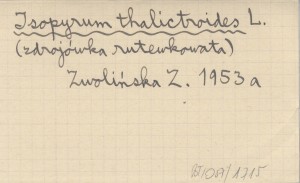 Isopyrum thalictroides L.
(zdrojówka rutewkowata)
Zwolińska Z. 1953a